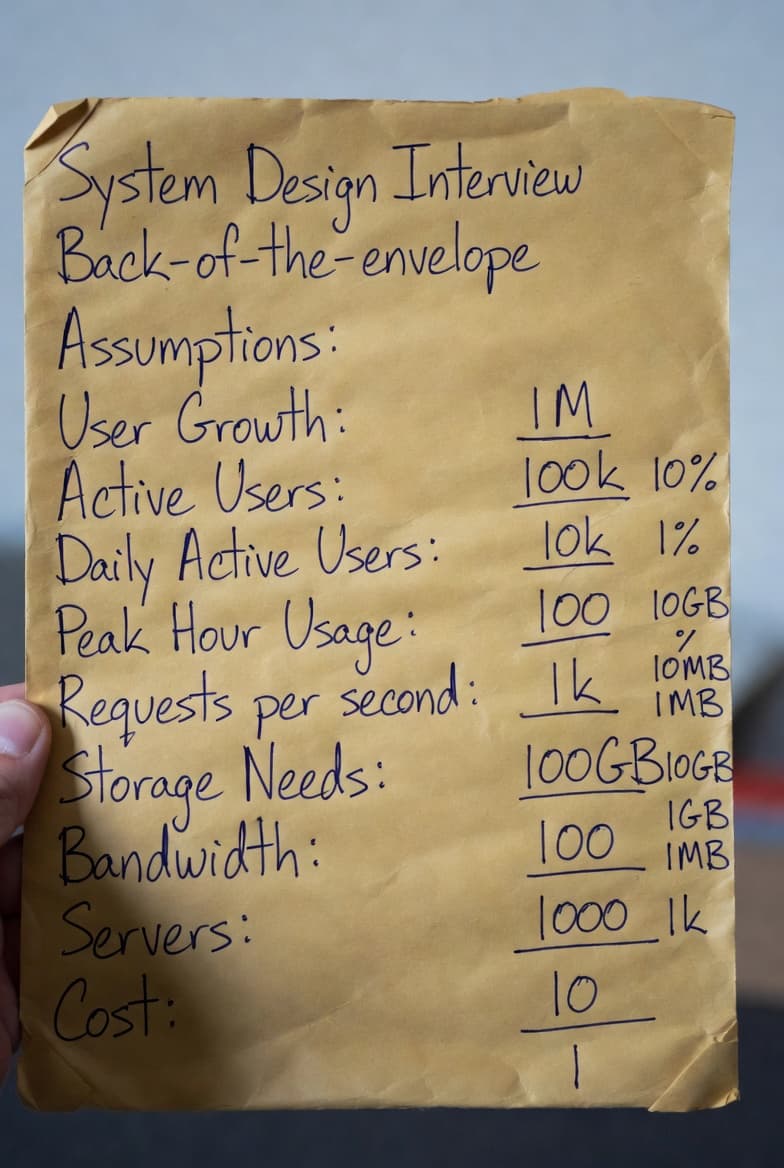 System Design Interview
Back-of-the-envelope
Assumptions:
User Growth: 1M
Active Users: 100k 10%
Daily Active Users: 10k 1%
Peak Hour Usage: 100 10GB
%
Requests per second: 1k 10MB
1MB
Storage Needs: 100GB 10GB
1GB
Bandwidth: 100 1MB
Servers: 1000 1k
Cost: 10
1